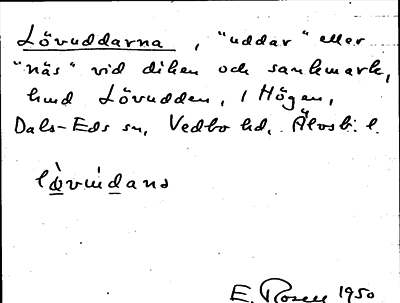 Lövuddarna, "uddar" eller
"näs" vid diken och sankmark,
hmd Lövudden, 1 Högen,
Dals-Eds sn, Vedbo hd, Älvsb. l.
E. Rosell 1950